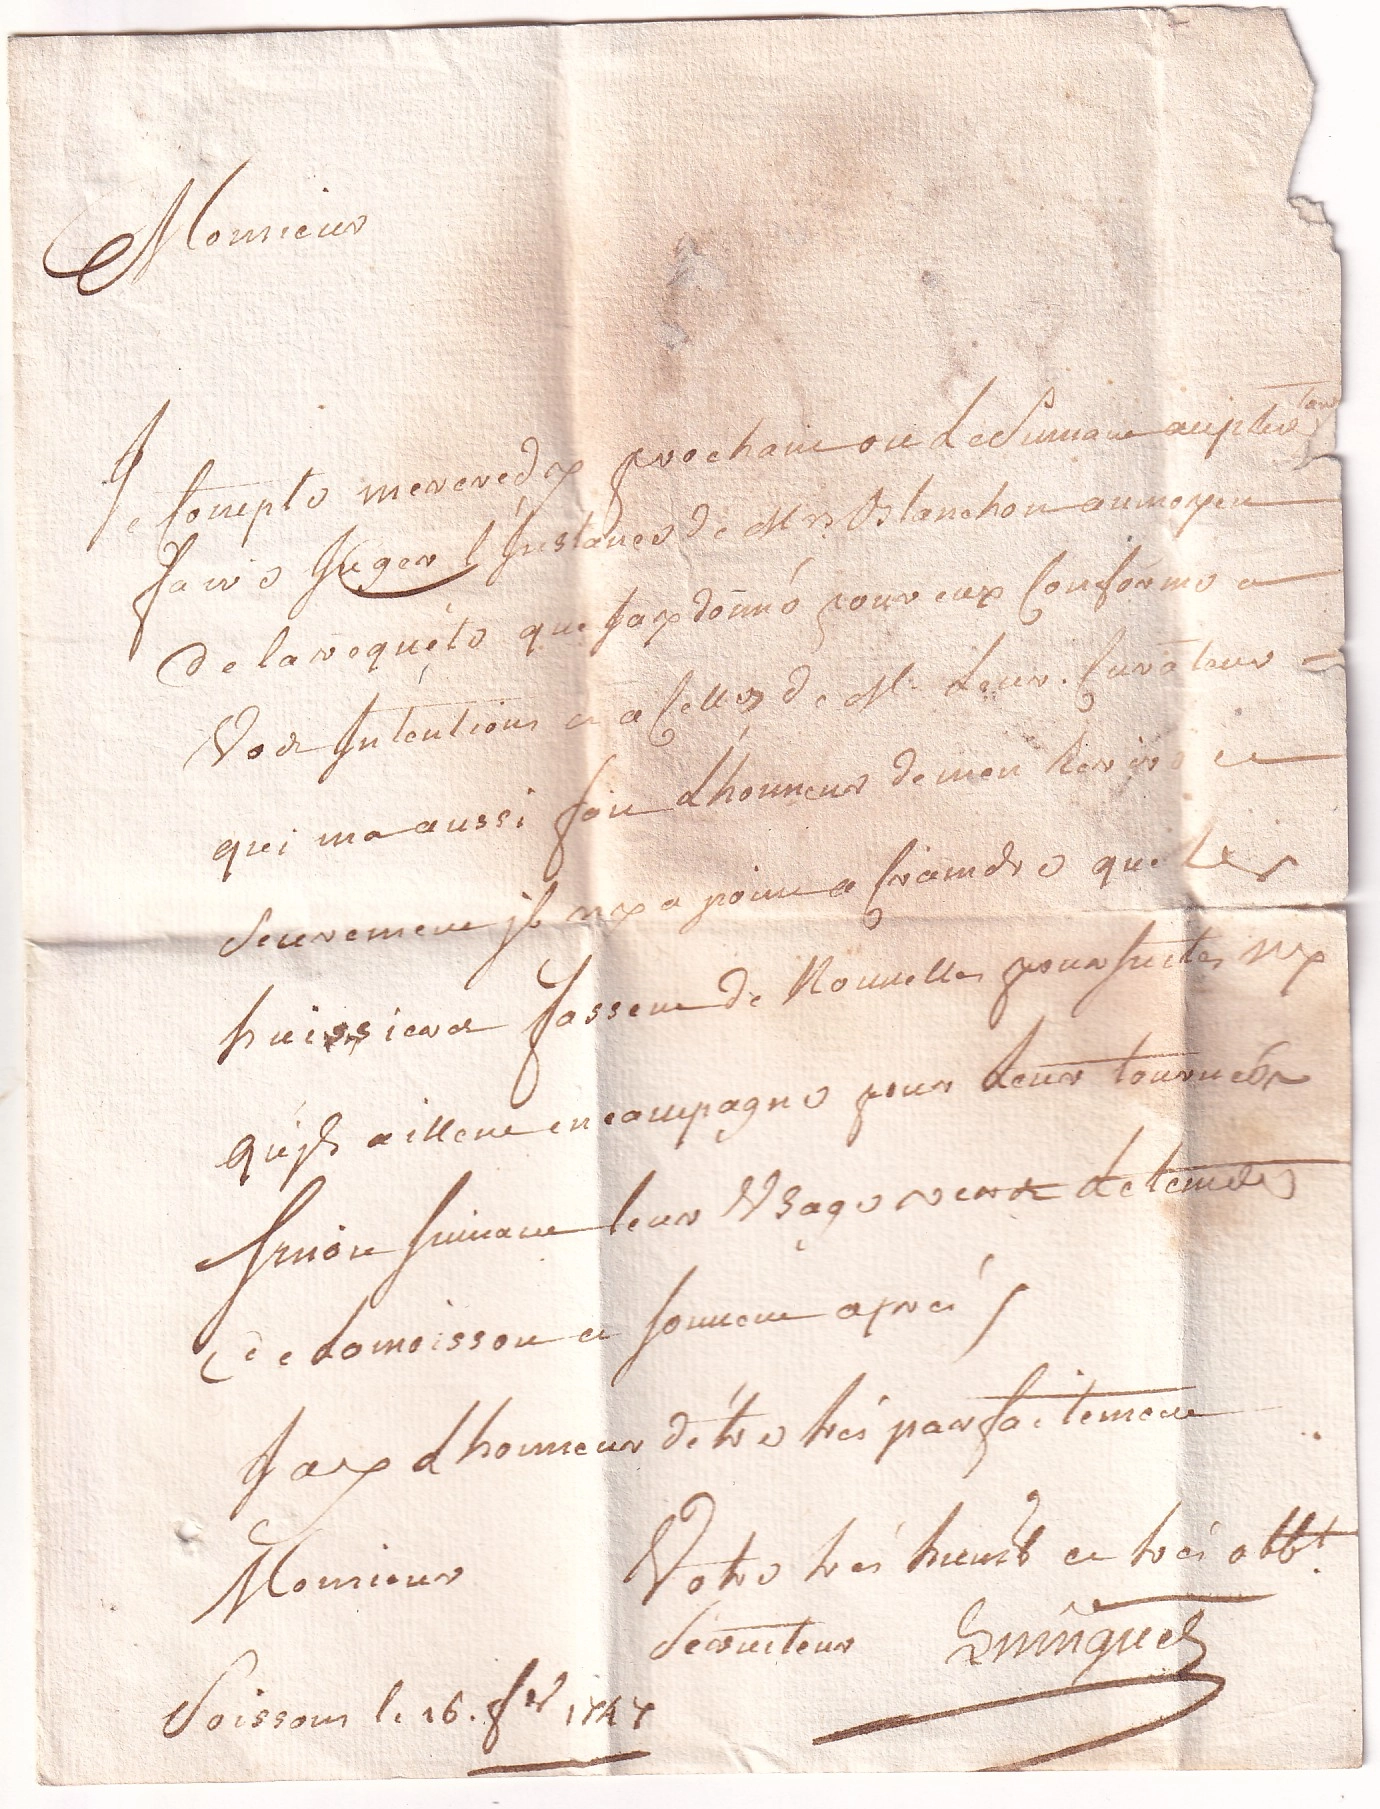 Monsieur
Je Compte mercredy prochain ou le Suivant au plus tard
faire Juger l'Instance de Mrs Blanchon au moyen
de la requête que Jay donné pour eux Conforme a
Vos Intentions et a Celles de Mr leur Curateur
qui ma aussi fait l'honneur de men Ecrire et
Seurement jl ny a point a Craindre que les
huissiers fassent de Nouvelles poursuites ny
qu'jls aillent en campagne pour leurs tournées
Sinon Suivant leur Usage vers le tems
de la moisson et Souvent aprés
Jay l'honneur détre trés parfaitement
Monsieur Votre trés humb et trés obbt.
Serviteur Quinquet
Soissons le 16. fer 1747